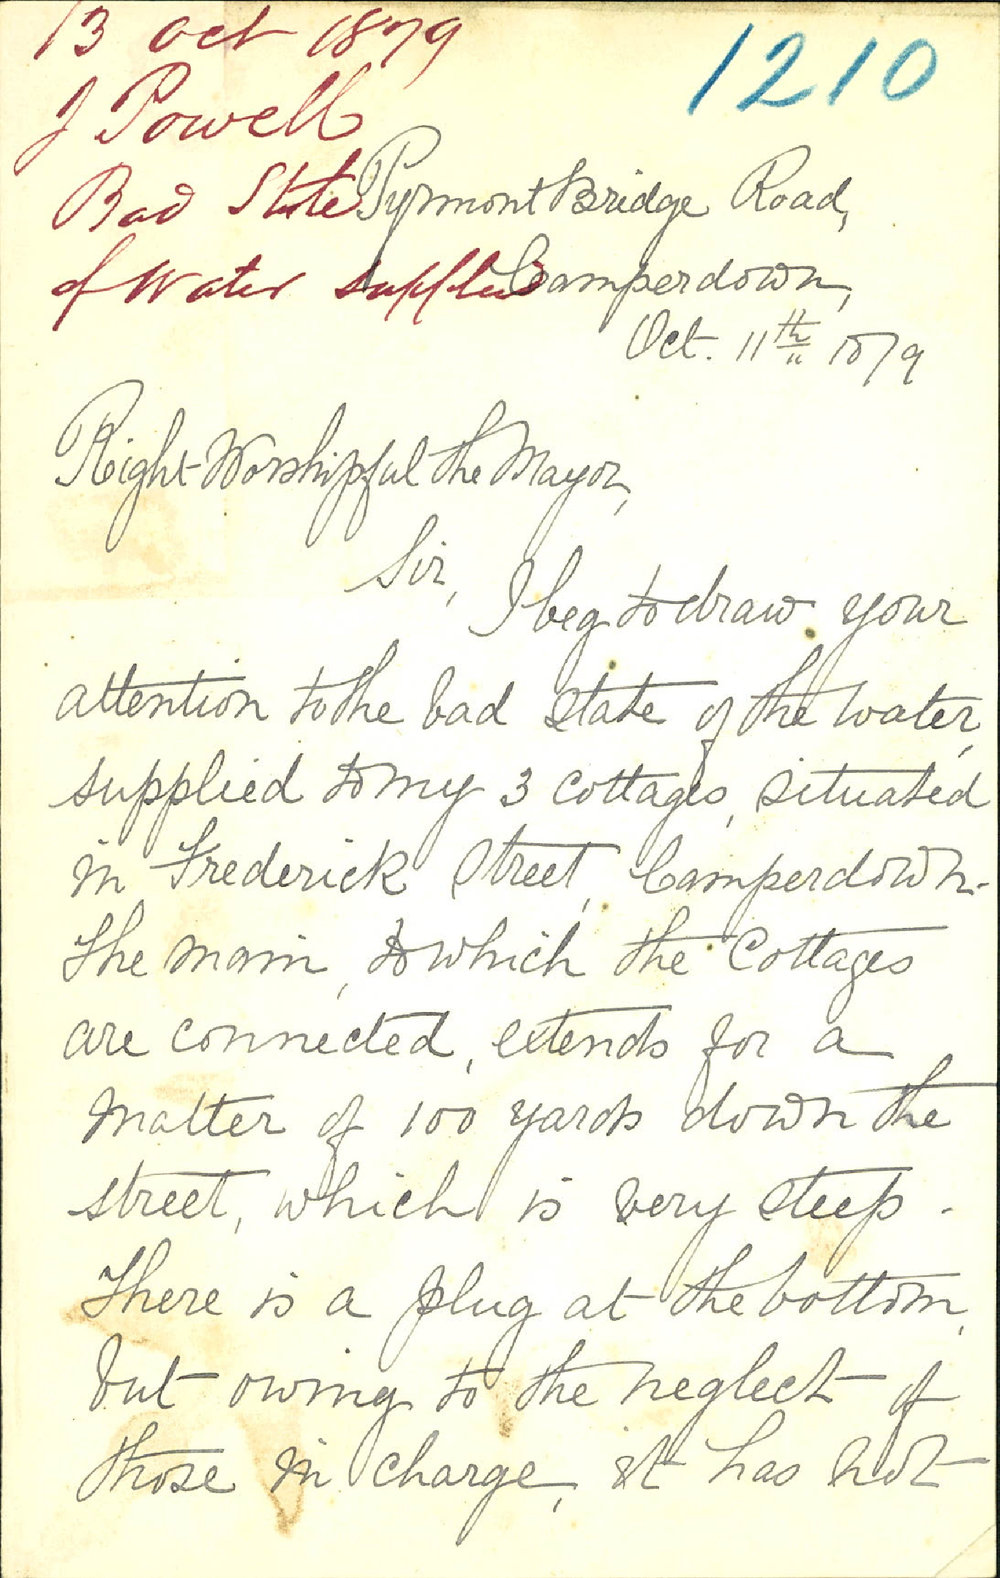 13 Oct 1879
1210
J Powell
Bad State
of Water supplied
Pyrmont Bridge Road,
Camperdown,
Oct. 11th 1879
Right Worshipful the Mayor,
Sir,
I beg to draw your
attention to the bad state of the water,
supplied to my 3 cottages, situated
in Frederick Street, Camperdown.
The main, to which the Cottages
are connected, extends for a
matter of 100 yards down the
street, which is very steep.
There is a plug at the bottom,
but owing to the neglect of
those in charge, it has not